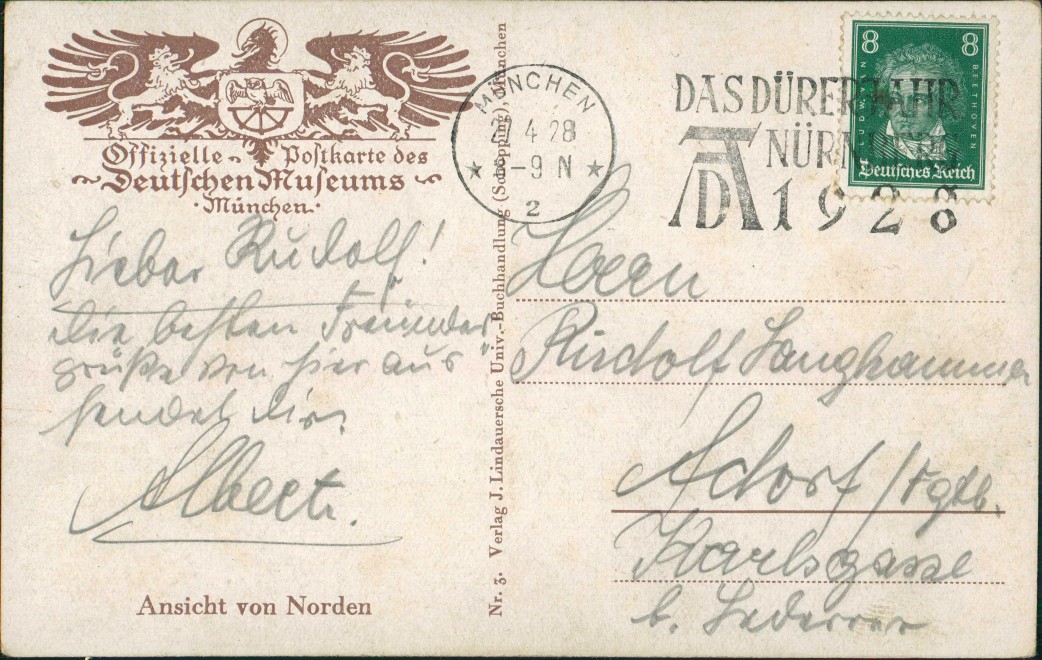 Offizielle Postkarte des
Deutschen Museums
· München ·
Lieber Rudolf!
Die besten Freundes
grüße von hier aus
sendet dir
Albert.
Ansicht von Norden
Nr. 3. Verlag J. Lindauersche Univ.-Buchhandlung (Schöpping), München
MÜNCHEN
4 28
-9 N
2
DAS DÜRER JAHR
NÜRN
AD 1928
8 8
LUDW. VAN BEETHOVEN
Deutsches Reich
Herrn
Rudolf Langhammer
Adorf / Vgtb.
Karlsgasse
b. Lederer